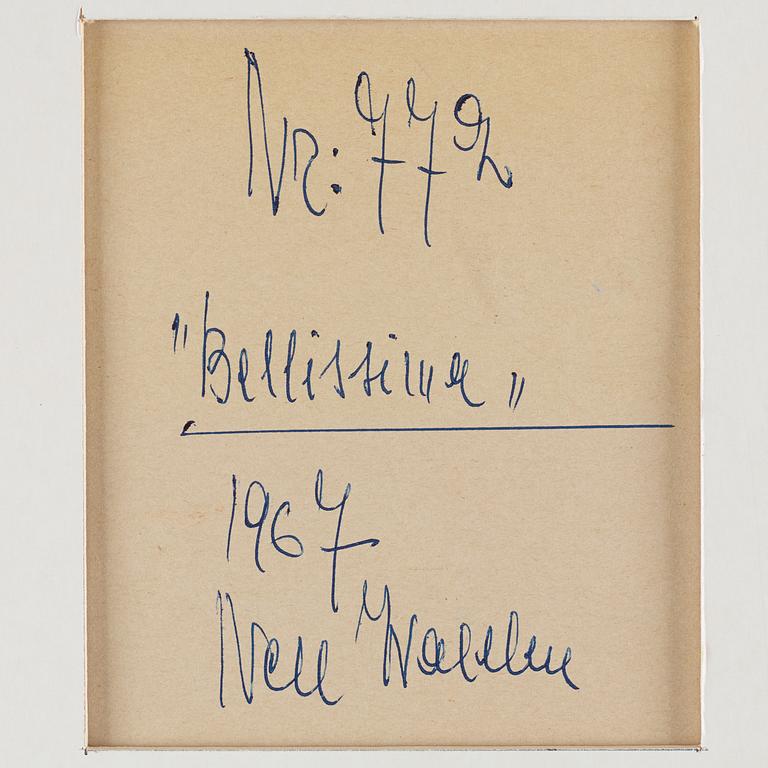 Nr: 772
"Bellissima"
1967
Nell Walden